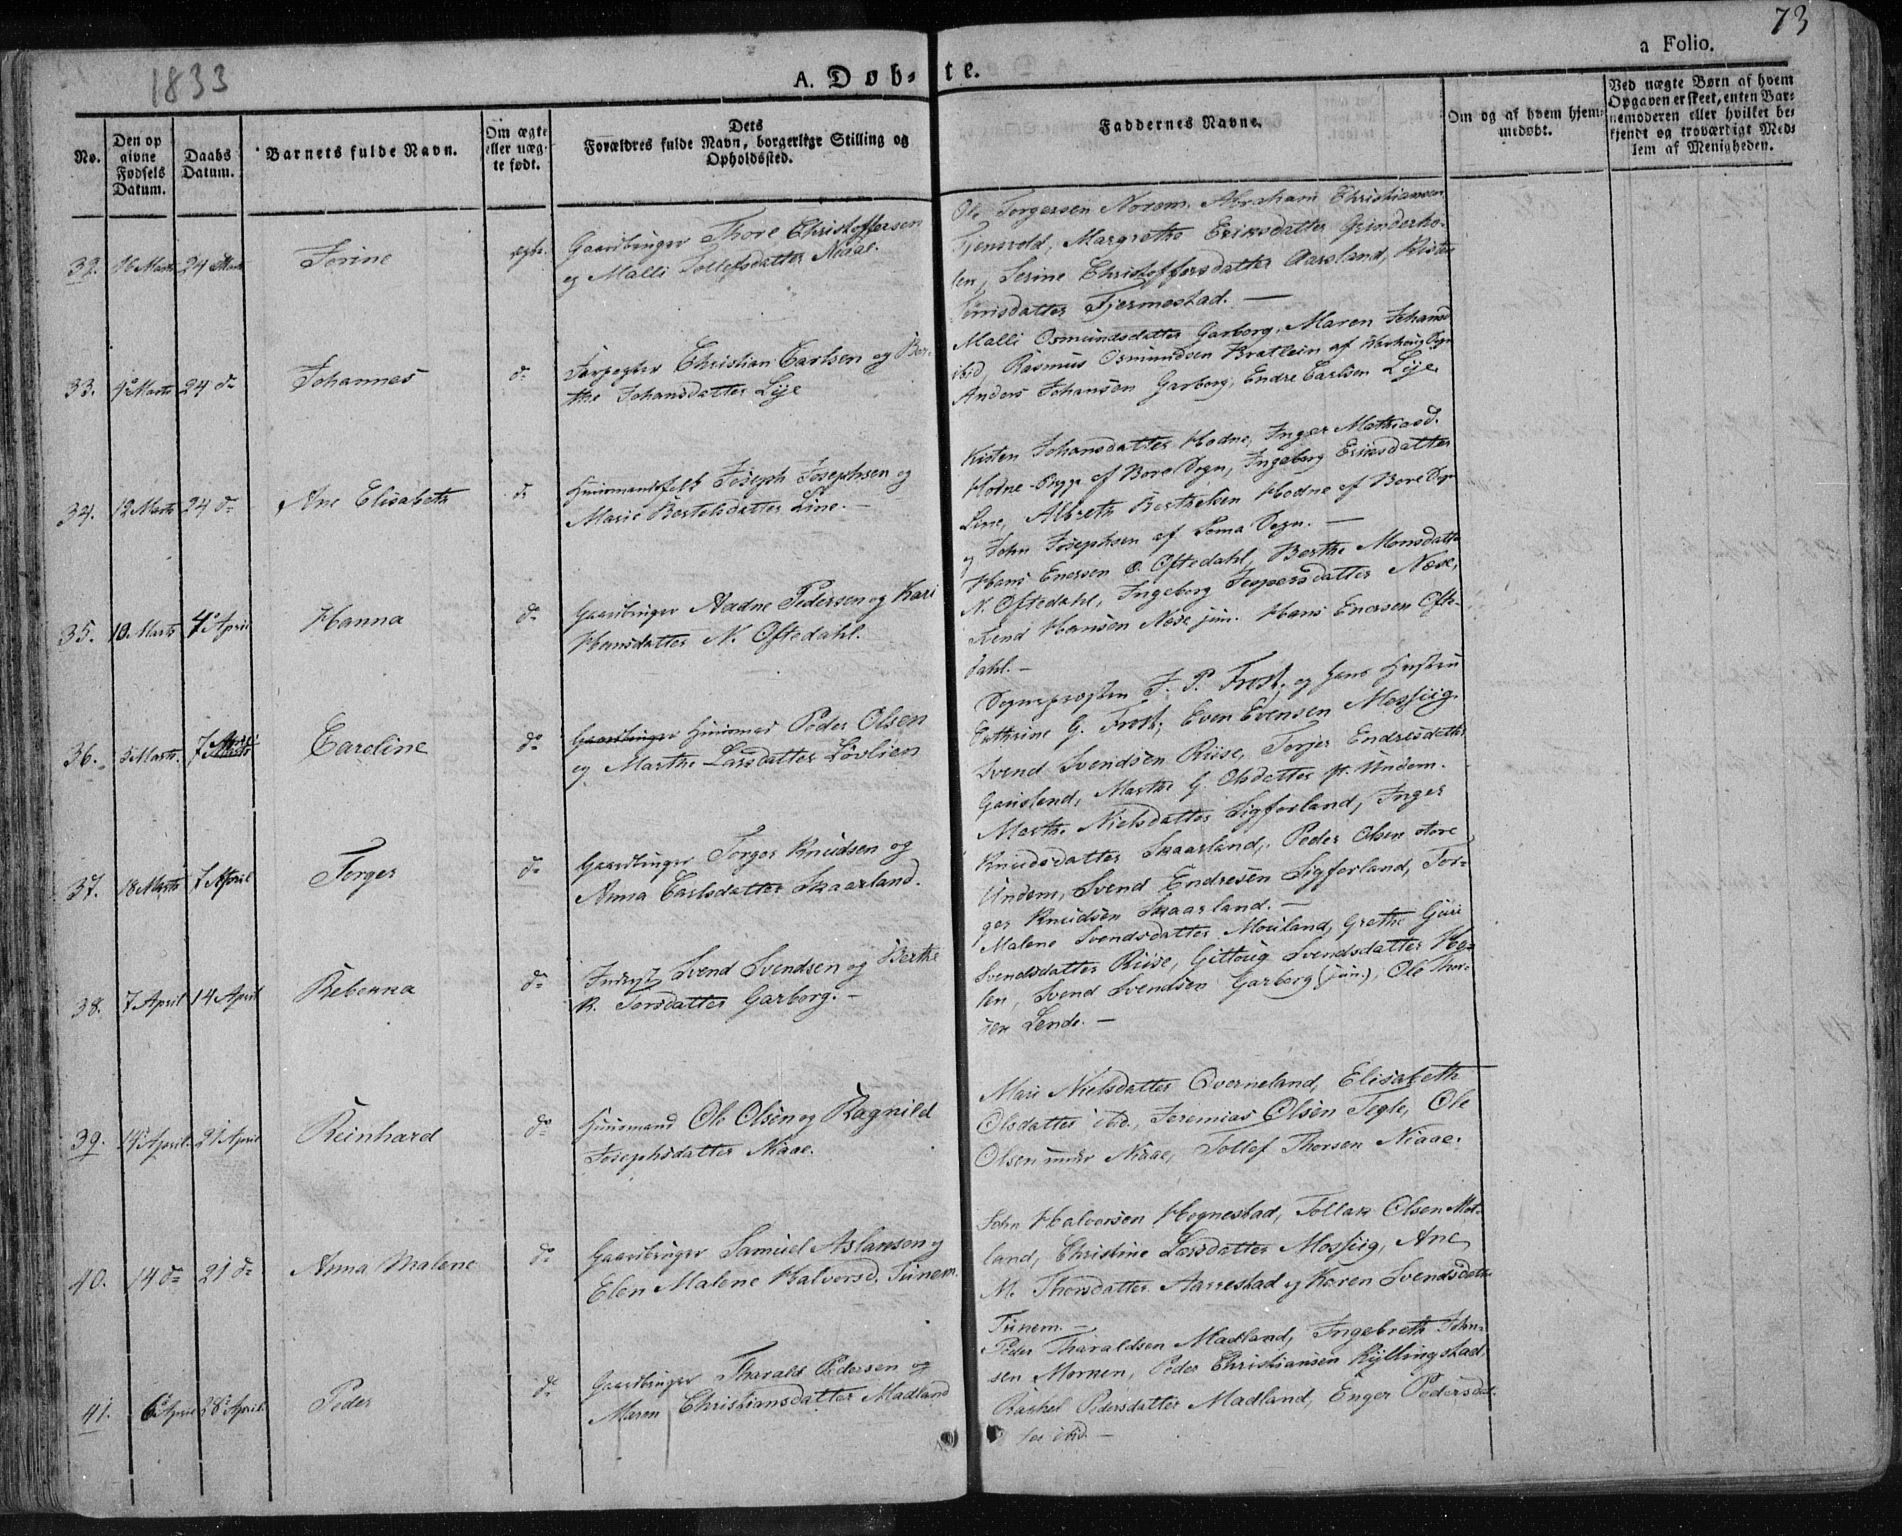 1833
73
a Folio.
A. Døb-te.
No.
Den op
givne
Fødsels
Datum.
Daabs
Datum.
Barnets fulde Navn.
Om ægte
eller uæg-
te født.
Dets
Forældres fulde Navn, borgerlige Stilling og
Opholdssted.
Faddernes Navne.
Om og af hvem hjem-
medøbt.
Ved uægte Børn af hvem
Opgaven er skeet, enten Bar-
nemoderen eller hvilket be-
kjendt og troværdigt Med-
lem af Menigheden.
32. 16 Marts 24 Marts Serine ægte. Gaardbruger Thore Christoffersen
og Malli Tollefsdatter Niaae.
Ole Torgersen Norem. Abraham Christiansen
Margrethe Eriksdatter
Serine Christoffersdatter Aarsland,
Tjermestad. —
33. 9 Marts 24 do Johannes do Christian Carlsen og Ber-
the Johansdatter Lye
Malli Osmundsdatter Garborg, Maren Johansd
ibid, Rasmus Osmundsen Bratlein af
Anders Johansen Garborg, Endre Carlsen Lye.
34. 12 Marts 24 do Ane Elisabeth do Huusmandsfolk Joseph Josephsen og
Marie Bertelsdatter Line. —
Kisten Johansdatter Hodne, Inger Mathiasd.
Hodne af Bore Sogn, Ingeborg Eriksdatter
Line, Hodne af Bore Sogn
og John Josephsen af Soma Sogn. —
35. 10. Marts 4 April Hanna do Gaardbruger Aadne Pedersen og Kari
Hansdatter N. Oftedahl.
Hans Enersen Oftedahl, Berthe Monsdatter
N. Oftedahl, Ingeborg Jespersdatter Næse,
Hansen Næse jun. Hans Enersen Ofte-
dahl. —
36. 5 Marts. 7 April Caroline do Huusmand Peder Olsen
og Marthe Larsdatter Løvlien
Sognepræsten J. P. Frost, og Hans Hustru
Cathrine G. Frost, Even Evensen Mossiig.
Svend Svendsen Riise, Torjer Endresdatter
Marthe G. Olsdatter Undem.
37. 18 Marts 7 April Torger do Gaardbruger Torger Knudsen og
Anna Carlsdatter Skaarland.
Marthe Nielsdatter Sigforland, Inger
Knudsdatter Skaarland, Peder Olsen store
Undem, Svend Endresen Sigforland, Tor-
ger Knudsen Skaarland. —
38. 7 April 14 April Rebekka do Svend Svendsen og Berthe
R. Torsdatter Garborg. —
Malene Svendsdatter Mouland, Grethe
Svendsdatter Riise, Svendsdatter Hog-
len, Svend Svendsen Garborg (jun.), Ole Thor-
sen Lende. —
39. 14 April. 21 April Reinhard do Huusmand Ole Olsen og Ragnild
Josephsdatter Niaae.
Mari Nielsdatter Qverneland, Elisabeth
Olsdatter ibid., Jeremias Olsen Tegle, Ole
Olsen Niaae, Tollef Thorsen Niaae.
40. 14 do 21 do Anna Malene do Gaardbruger Samuel Aslansen og
Elen Malene Halvorsd. Tunem.
John Halvorsen Hognestad, Tollak Olsen Mot-
land, Christine Larsdatter Mossiig, Ane
M. Thorsdatter Aarrestad og Karen Svendsdatter
Tunem. —
41. 6 April 28 April Peder do Gaardbruger Tharald Pedersen og
Maren Christiansdatter Madland
Peder Tharaldsen Madland, Ingebreth John-
sen Mornen, Peder Christiansen Kyllingstad
Raskel Pedersdatter Madland, Enger Pedersdat-
ter ibid. —